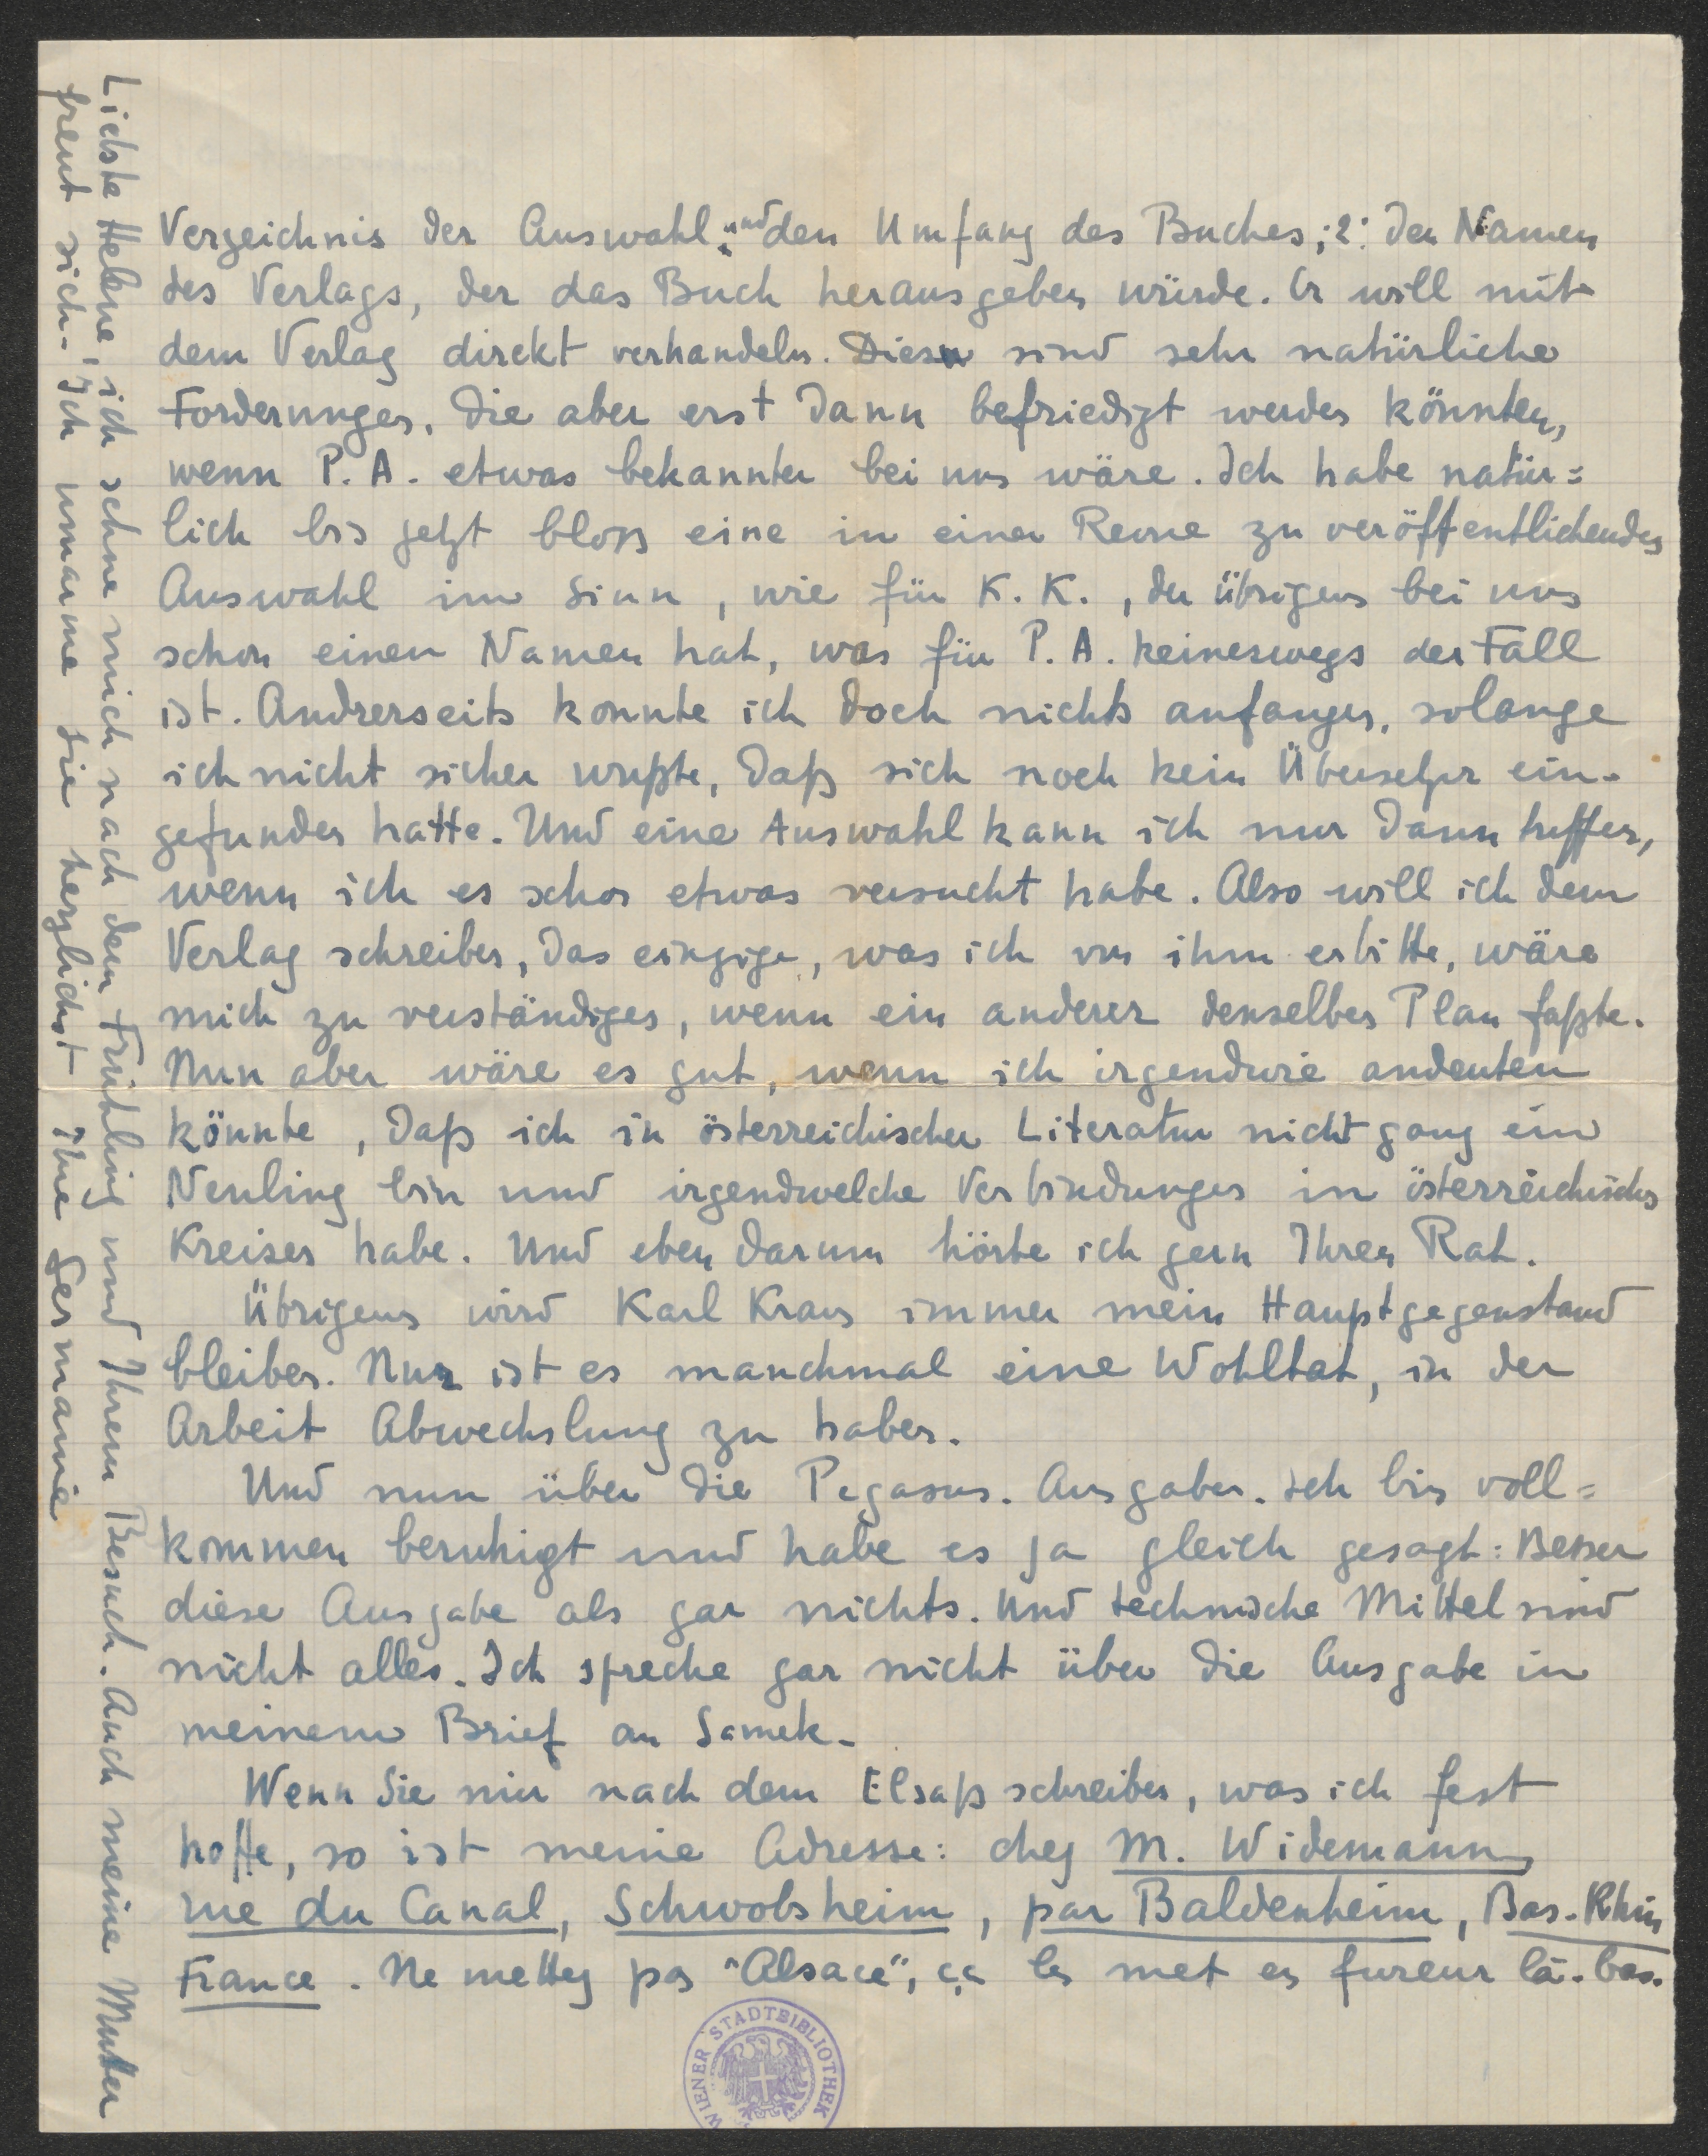 Verzeichnis der Auswahl und den Umfang des Buches; 2: Den Namen
des Verlags, der das Buch herausgeben würde. Er will mit
dem Verlag direkt verhandeln. Diese sind sehr natürliche
Forderungen, die aber erst dann befriedigt werden könnten,
wenn P. A. etwas bekannter bei uns wäre. Ich habe natür=
lich bis jetzt bloss eine in einer Revue zu veröffentlichenden
Auswahl im Sinn, wie für K. K., der übrigens bei uns
schon einen Namen hat, was für P. A. keineswegs der Fall
ist. Andrerseits konnte ich doch nichts anfangen, solange
ich nicht sicher wußte, daß sich noch kein Übersetzer ein-
gefunden hatte. Und eine Auswahl kann ich nur dann treffen,
wenn ich es schon etwas versucht habe. Also will ich dem
Verlag schreiben, das einzige, was ich von ihm erbitte, wäre
mich zu verständigen, wenn ein anderer denselben Plan faßte.
Nun aber wäre es gut, wenn ich irgendwie andeuten
könnte, daß ich in österreichischer Literatur nicht ganz ein
Neuling bin und irgendwelche Verbindungen in österreichischen
Kreisen habe. Und eben darum hörte ich gern Ihren Rat.
Übrigens wird Karl Kraus immer mein Hauptgegenstand
bleiben. Nur ist es manchmal eine Wohltat, in der
Arbeit Abwechslung zu haben.
Und nun über die Pegasus-Ausgaben. Ich bin voll=
kommen beruhigt und habe es ja gleich gesagt: Besser
diese Ausgabe als gar nichts. Und technische Mittel sind
nicht alles. Ich spreche gar nicht über die Ausgabe in
meinem Brief an Samek.
Wenn Sie mir nach dem Elsaß schreiben, was ich fest
hoffe, so ist meine Adresse: chez M. Widemann,
rue du Canal, Schwobsheim, par Baldenheim, Bas-Rhin
France. Ne mettez pas "Alsace", ça les met en fureur là-bas.
Liebste Helene, ich sehne mich nach dem Frühling und Ihrem Besuch. Auch meine Mutter
freut sich. Ich umarme Sie herzlichst Ihre Germaine
WIENER STADTBIBLIOTHEK